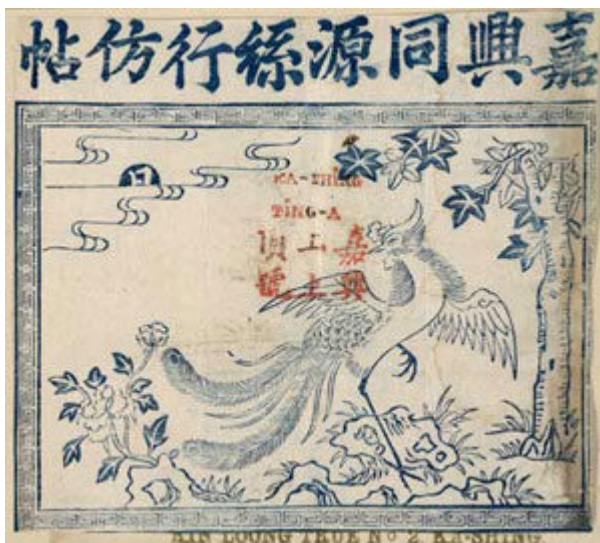 嘉興同源絲行仿帖
日
KA-SHING
TING-A
嘉興
上上
頂號
LOONG TRUE No 2 KA-SHING